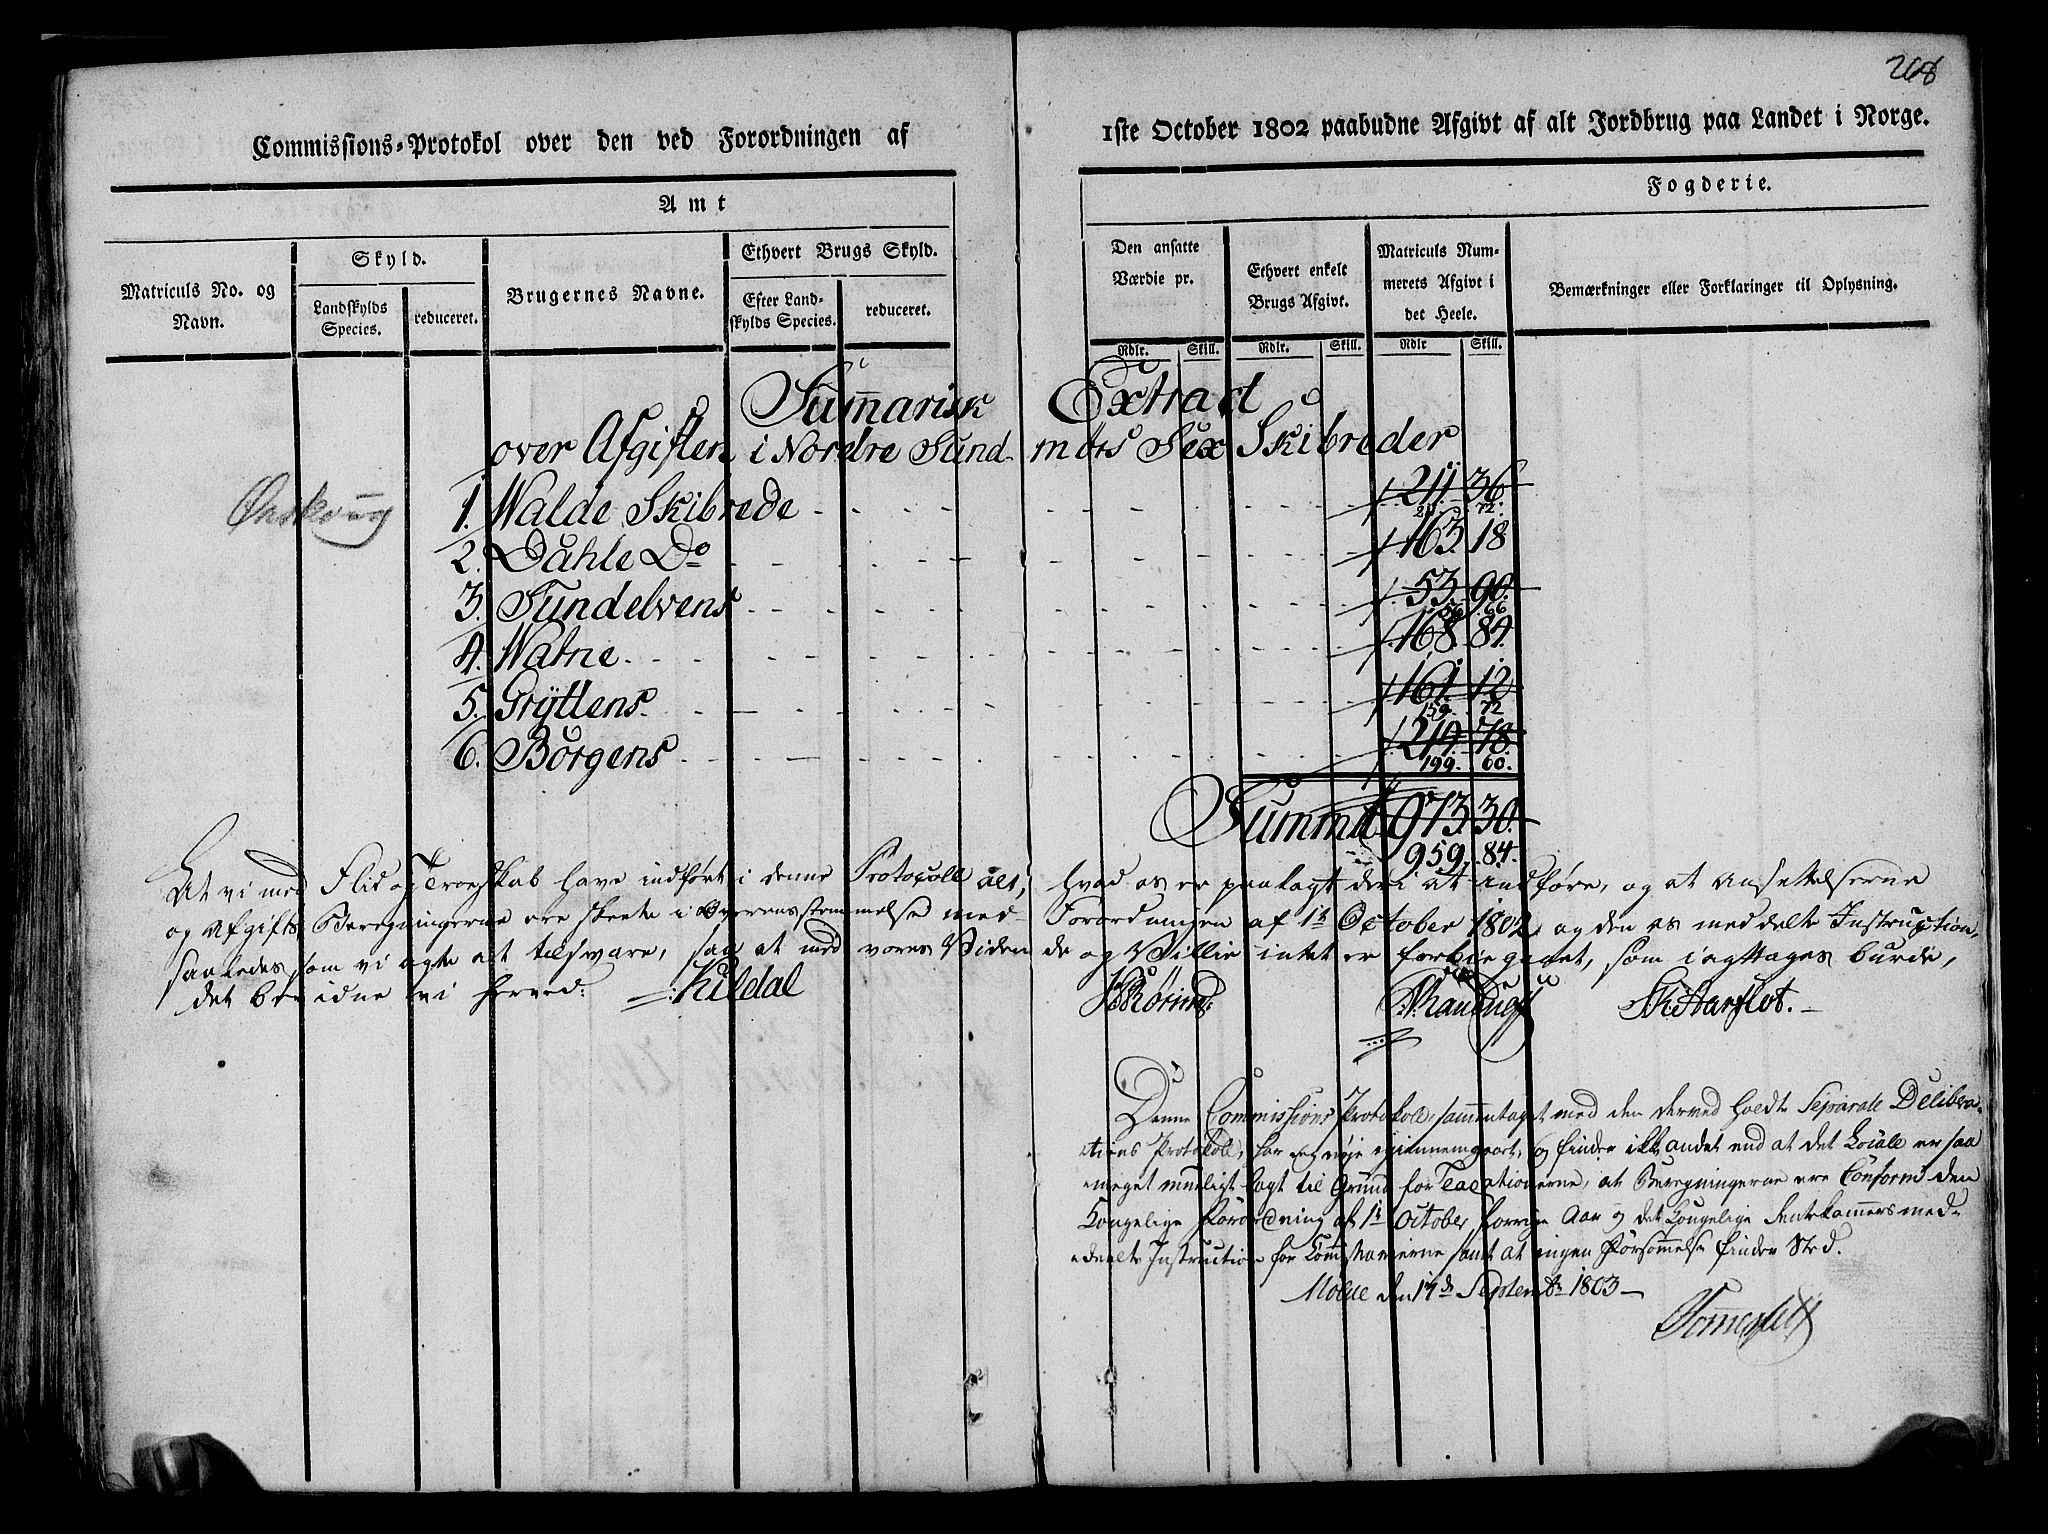 268
Commissions-Protokol over den ved Forordningen af 1ste October 1802 paabudne Afgivt af alt Jordbrug paa Landet i Norge.
Amt
Fogderie.
Matriculs No. og Navn.
Skyld.
Landskylds Species.
reduceret.
Brugernes Navne.
Ethvert Brugs Skyld.
Efter Landskylds Species.
reduceret.
Den ansatte Værdie pr.
Ethvert enkelt Brugs Afgivt.
Matriculs Nummerets Afgivt i det Heele.
Bemærkninger eller Forklaringer til Oplysning.
Rdlr. Skill. Rdlr. Skill. Rdlr Skill.
Sum̄arisk Extract
over Afgiften i Nordre Sundmørs Sex Skibreder
Ørskoug
1. Walde Skibrede 211. 36.
72.
2. Dahle Do 163. 18
3. Sundelvens 53. 90.
56. 66
4. Watne 168. 84.
5. Grÿttens 161. 12
159. 72
6. Børgens 214. 78.
199. 60.
Summa 973. 30.
959. 84.
At vi med Flid og Troeskab have indført i denne Protocoll alt, hvad os er paalagt deri at indføre, og at Ansettelserne
og Afgifts Beregningerne ere skeete i Overensstemmelse med Forordningen af 1te October 1802, og den os meddelte Instruction,
saaledes som vi agte at tilsvare, saa at med vores Vidende og Villie intet er forbiegaaet, som iagttages burde,
det bevidne vi herved:
Kildal
Sk Harflot.
Denne Commissions Protokoll, sammentaget med den derved holdte Separate Delibera-
tions Protokoll, har jeg nøje igiennemgaaet, og finder ikke andet end at det Locale er saa
meget mueligt lagt til Grund for Taxationerne, at Beregningerne ere Conform den
Kongelige Forordning af 1te October forrige Aar og det Kongelige Rentekammers med-
deelte Instruction for Commissairerne samt at ingen Forsømmelse finder Sted.
Molde den 17de September 1803